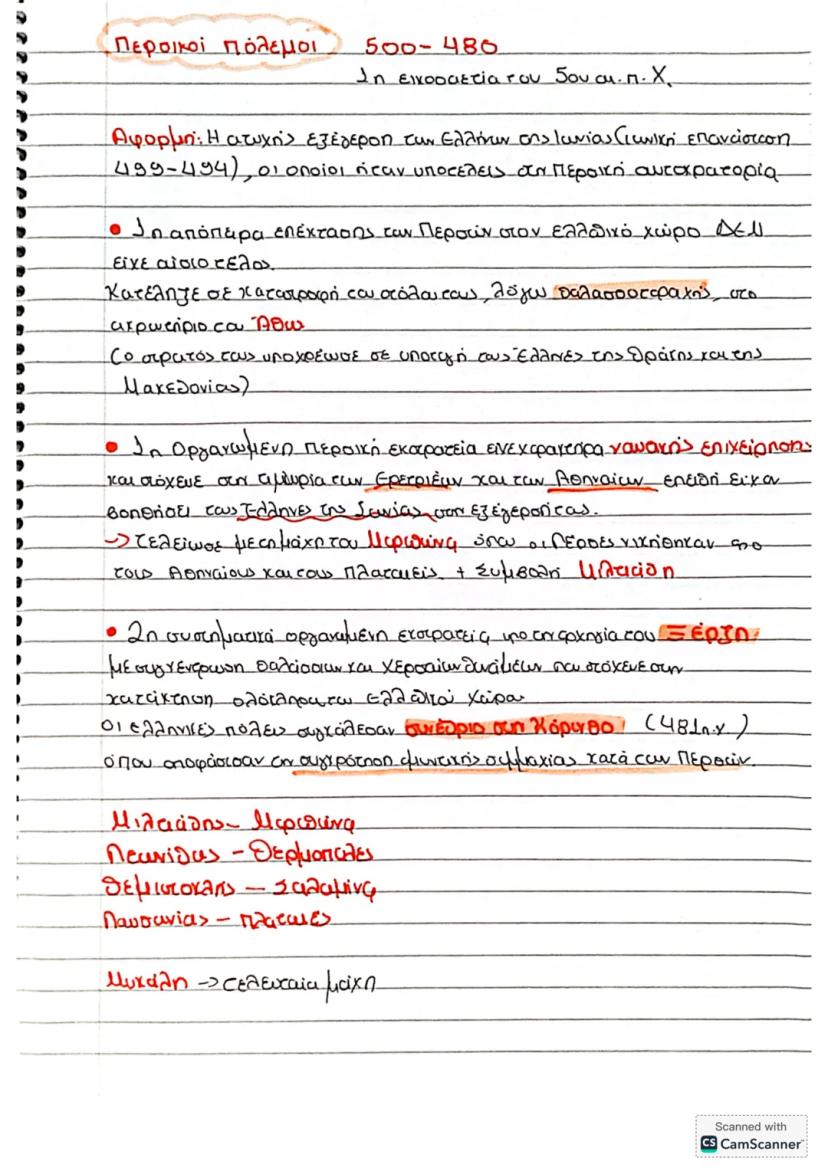 Περσικοί πόλεμοι 500-480
1η εικοσαετία του 5ου αι. π.Χ.
Αφορμή: Η ατυχής εξέγερση των Ελλήνων της Ιωνίας (ιωνική επανάσταση
499-494), οι οποίοι ήταν υποτελείς στην Περσική αυτοκρατορία
• 1η απόπειρα επέκτασης των Περσών στον ελλαδικό χώρο ΔΕΝ
είχε αίσιο τέλος.
Κατέληξε σε καταστροφή του στόλου τους, λόγω θαλασσοταραχής, στο
ακρωτήριο του Άθω
(ο στρατός τους υποχρέωσε σε υποταγή τους Έλληνες της Θράκης και της
Μακεδονίας)
• 1η Οργανωμένη περσική εκστρατεία είχε χαρακτήρα ναυτικής επιχείρησης
και στόχευε στη τιμωρία των Ερετριέων και των Αθηναίων επειδή είχαν
βοηθήσει τους Έλληνες της Ιωνίας στην εξέγερσή τους.
-> τελείωσε με τη μάχη του Μαραθώνα όπου οι Πέρσες νικήθηκαν από
τους Αθηναίους και τους Πλαταιείς + Συμβολή Μιλτιάδη
• 2η συστηματικά οργανωμένη εκστρατεία υπό την αρχηγία του Ξέρξη
με συγκέντρωση θαλάσσιων και χερσαίων δυνάμεων που στόχευε στην
κατάκτηση ολόκληρου του ελλαδικού χώρου
Οι ελληνικές πόλεις συγκάλεσαν συνέδριο στη Κόρινθο (481π.χ)
όπου αποφάσισαν τη συγκρότηση αμυντικής συμμαχίας κατά των Περσών.
Μιλτιάδης- Μαραθώνα
Λεωνίδας - Θερμοπύλες
Θεμιστοκλής - Σαλαμίνα
Παυσανίας - Πλαταιές
Μυκάλη -> τελευταία μάχη
Scanned with
CS CamScanner